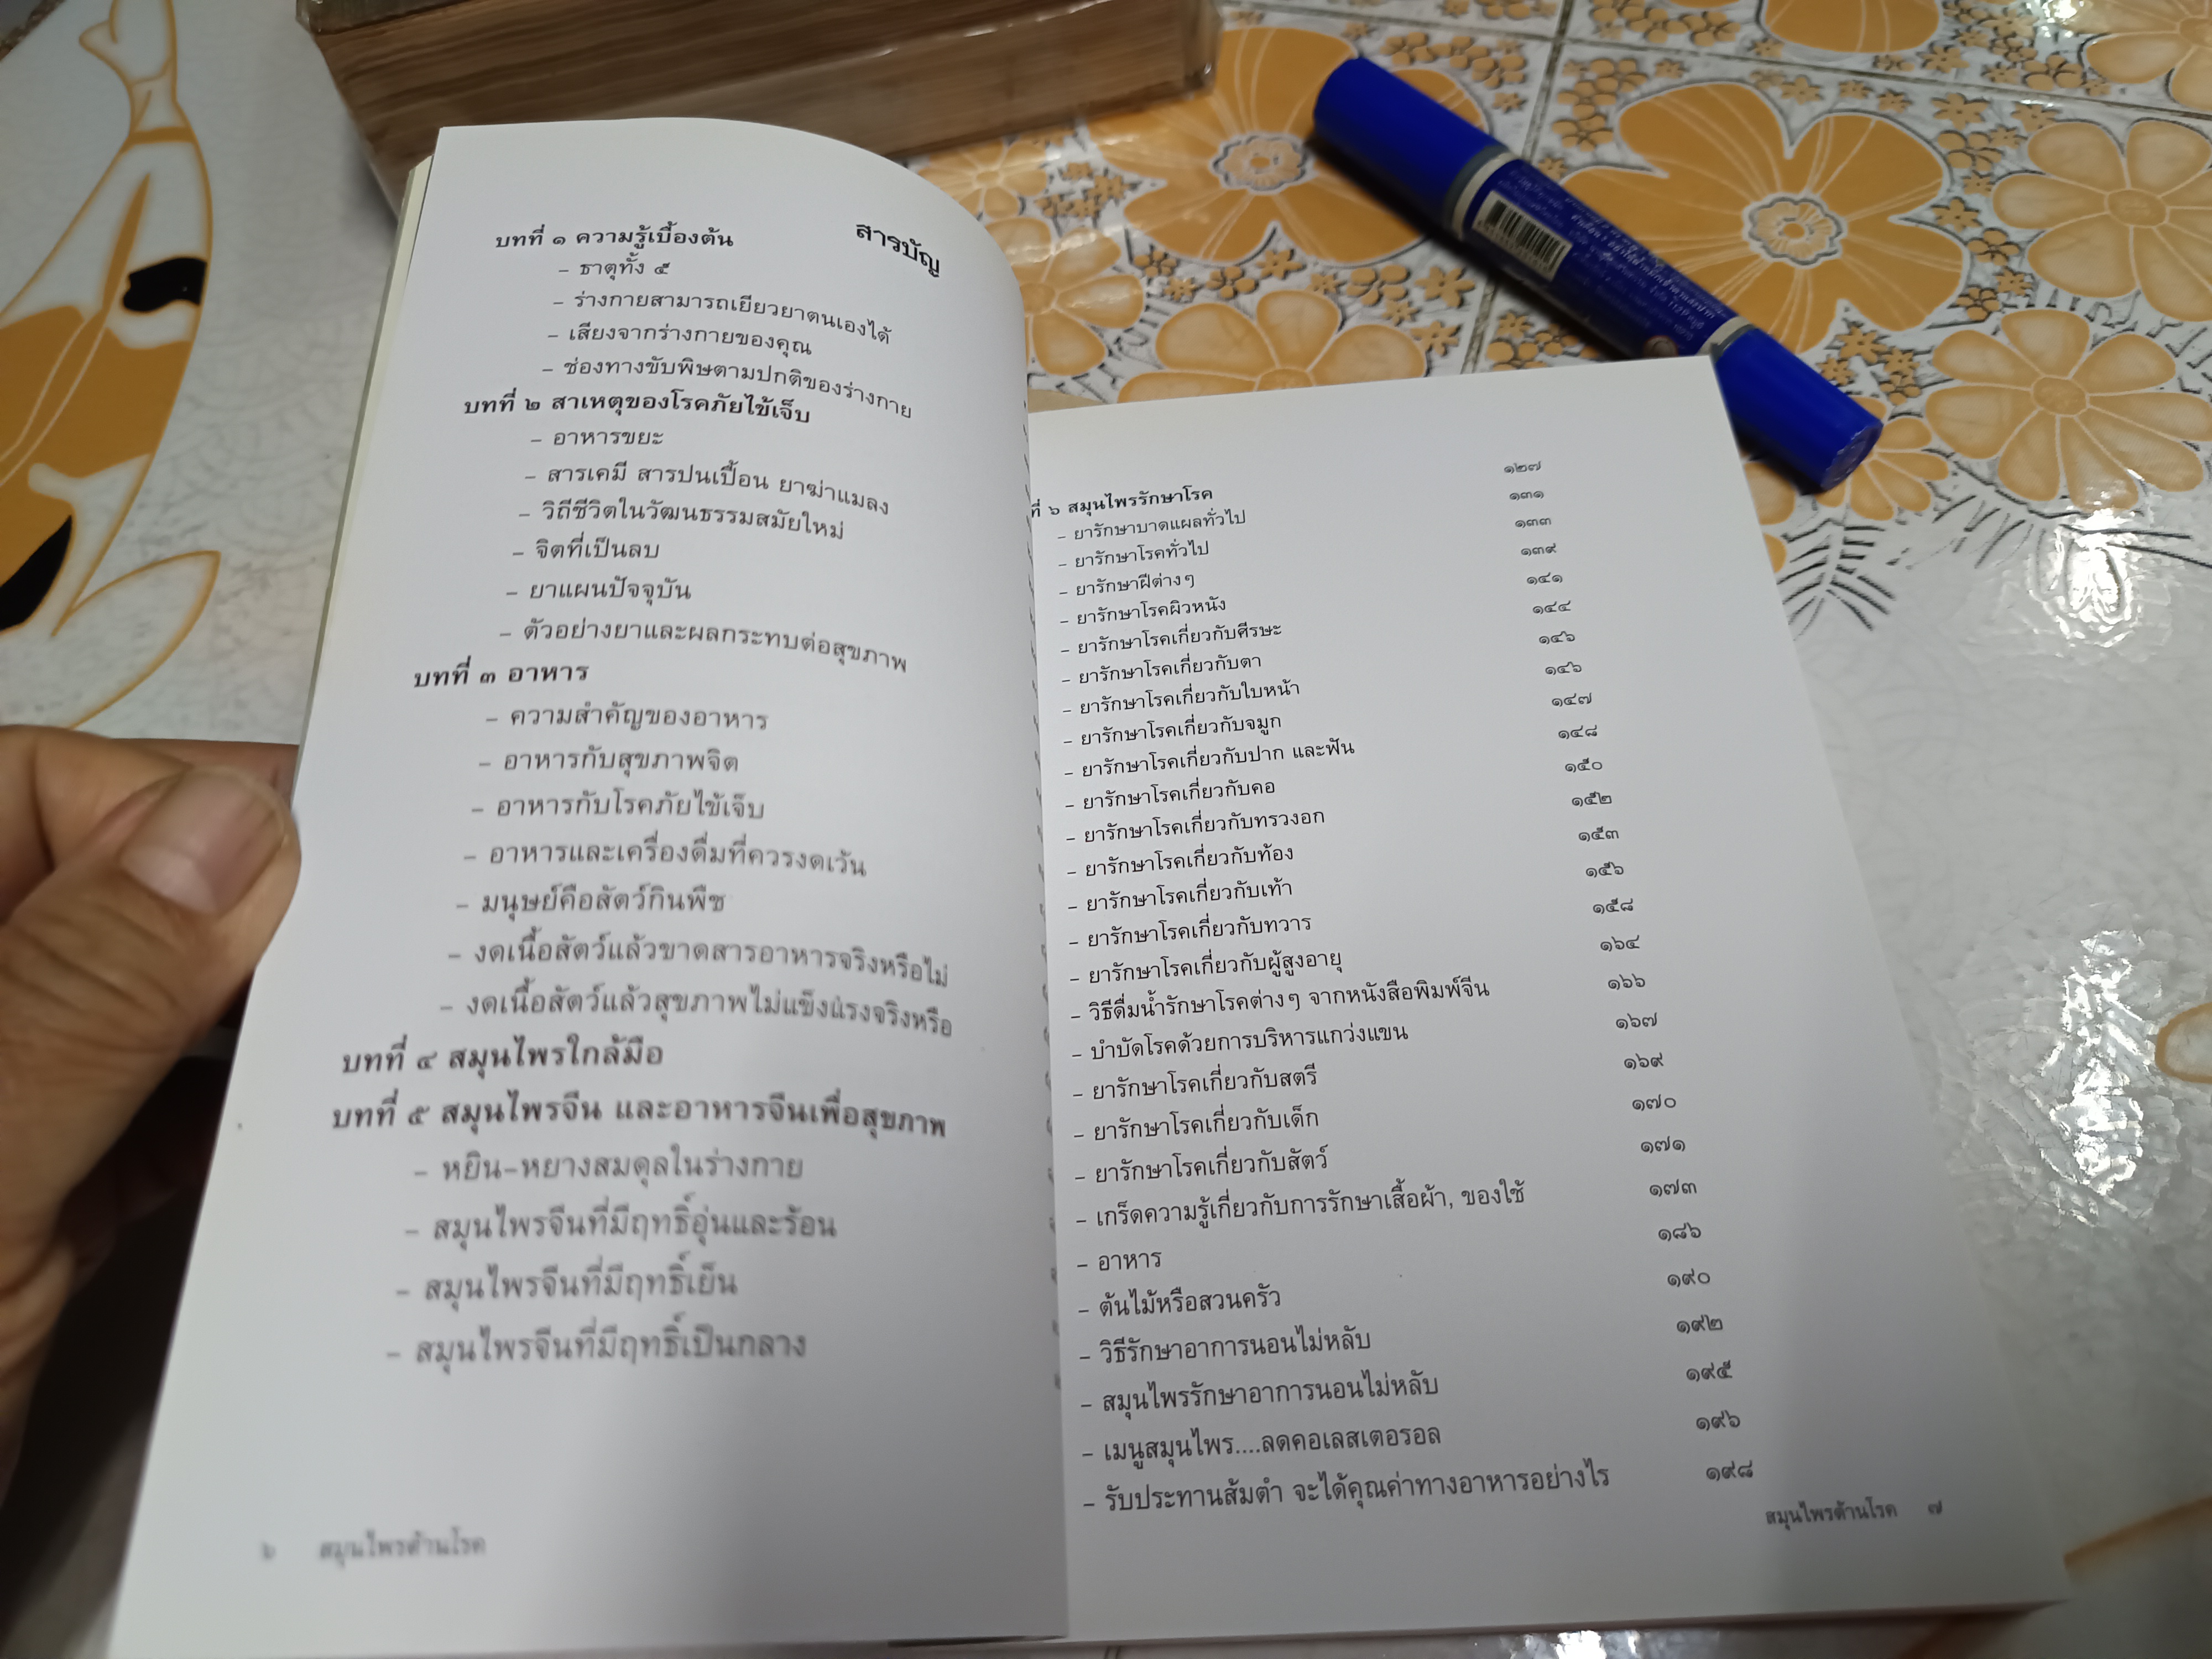 สารบัญ
บทที่ ๑ ความรู้เบื้องต้น
- ธาตุทั้ง ๕
- ร่างกายสามารถเยียวยาตนเองได้
- เสียงจากร่างกายของคุณ
- ช่องทางขับพิษตามปกติของร่างกาย
บทที่ ๒ สาเหตุของโรคภัยไข้เจ็บ
- อาหารขยะ
- สารเคมี สารปนเปื้อน ยาฆ่าแมลง
- วิถีชีวิตในวัฒนธรรมสมัยใหม่
- จิตที่เป็นลบ
- ยาแผนปัจจุบัน
- ตัวอย่างยาและผลกระทบต่อสุขภาพ
บทที่ ๓ อาหาร
- ความสำคัญของอาหาร
- อาหารกับสุขภาพจิต
- อาหารกับโรคภัยไข้เจ็บ
- อาหารและเครื่องดื่มที่ควรงดเว้น
- มนุษย์คือสัตว์กินพืช
- งดเนื้อสัตว์แล้วขาดสารอาหารจริงหรือไม่
- งดเนื้อสัตว์แล้วสุขภาพไม่แข็งแรงจริงหรือ
บทที่ ๔ สมุนไพรใกล้มือ
บทที่ ๕ สมุนไพรจีน และอาหารจีนเพื่อสุขภาพ
- หยิน-หยางสมดุลในร่างกาย
- สมุนไพรจีนที่มีฤทธิ์อุ่นและร้อน
- สมุนไพรจีนที่มีฤทธิ์เย็น
- สมุนไพรจีนที่มีฤทธิ์เป็นกลาง
๖ สมุนไพรต้านโรค
ที่ ๖ สมุนไพรรักษาโรค ๑๒๗
- ยารักษาบาดแผลทั่วไป ๑๓๑
- ยารักษาโรคทั่วไป ๑๓๓
- ยารักษาฝีต่างๆ ๑๓๙
- ยารักษาโรคผิวหนัง ๑๔๑
- ยารักษาโรคเกี่ยวกับศีรษะ ๑๔๔
- ยารักษาโรคเกี่ยวกับตา ๑๔๖
- ยารักษาโรคเกี่ยวกับใบหน้า ๑๔๖
- ยารักษาโรคเกี่ยวกับจมูก ๑๔๗
- ยารักษาโรคเกี่ยวกับปาก และฟัน ๑๔๘
- ยารักษาโรคเกี่ยวกับคอ ๑๕๐
- ยารักษาโรคเกี่ยวกับทรวงอก ๑๕๒
- ยารักษาโรคเกี่ยวกับท้อง ๑๕๓
- ยารักษาโรคเกี่ยวกับเท้า ๑๕๖
- ยารักษาโรคเกี่ยวกับทวาร ๑๕๘
- ยารักษาโรคเกี่ยวกับผู้สูงอายุ ๑๖๔
- วิธีดื่มน้ำรักษาโรคต่างๆ จากหนังสือพิมพ์จีน ๑๖๖
- บำบัดโรคด้วยการบริหารแกว่งแขน ๑๖๗
- ยารักษาโรคเกี่ยวกับสตรี ๑๖๙
- ยารักษาโรคเกี่ยวกับเด็ก ๑๗๐
- ยารักษาโรคเกี่ยวกับสัตว์ ๑๗๑
- เกร็ดความรู้เกี่ยวกับการรักษาเสื้อผ้า, ของใช้ ๑๗๓
- อาหาร ๑๘๖
- ต้นไม้หรือสวนครัว ๑๙๐
- วิธีรักษาอาการนอนไม่หลับ ๑๙๒
- สมุนไพรรักษาอาการนอนไม่หลับ ๑๙๕
- เมนูสมุนไพร....ลดคอเลสเตอรอล ๑๙๖
- รับประทานส้มตำ จะได้คุณค่าทางอาหารอย่างไร ๑๙๘
สมุนไพรต้านโรค ๗